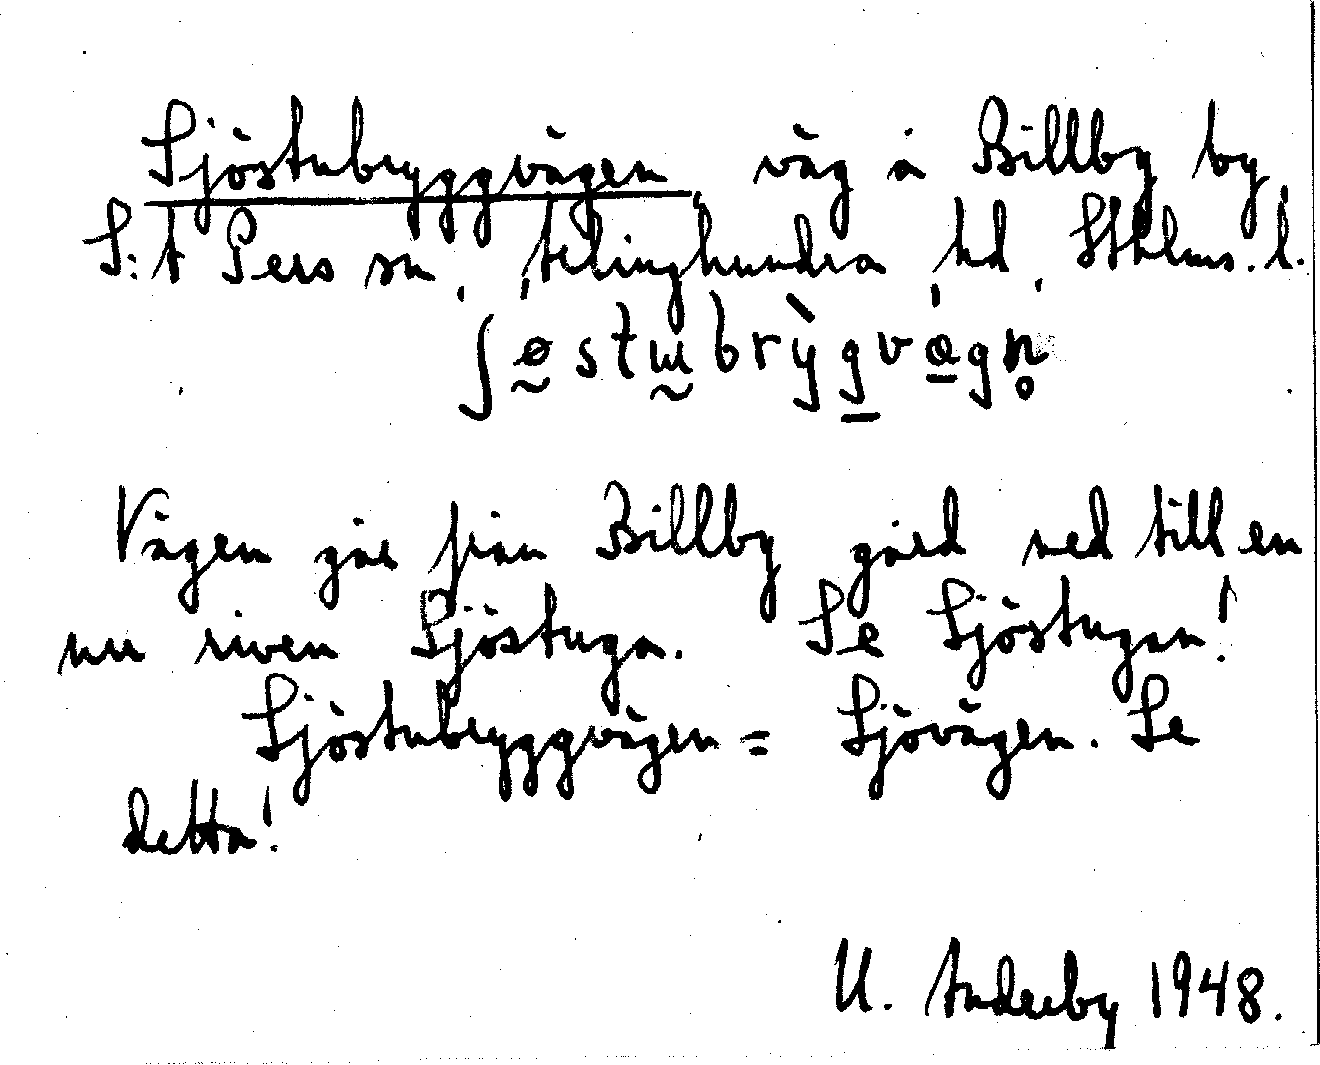 Sjöstubryggvägen, väg å Billby by
S:t Pers sn, Ärlinghundra hd, Sthlms. l.
ʃøstubrỳgvägn̥
Vägen går från Billby gård ned till en
nu riven Sjöstuga. Se Sjöstugan!
Sjöstubryggvägen = Sjövägen. Se
detta!
U. 1948.